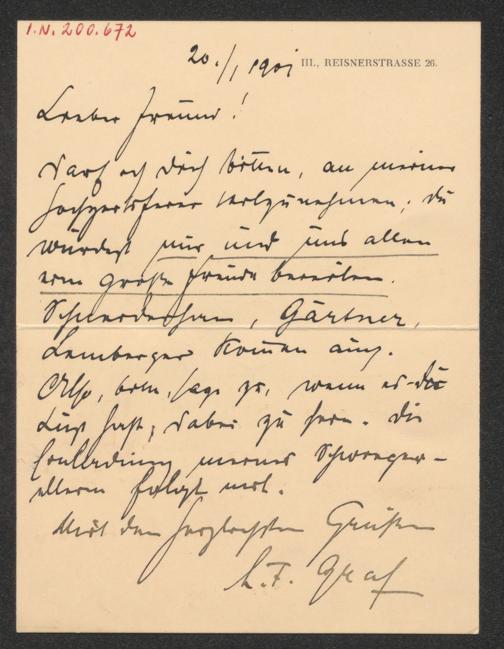 I.N. 200.672
20./1 1901 III., REISNERSTRASSE 26.
Lieber Freund!
Darf ich Dich bitten, an meiner
Hochzeitsfeier teilzunehmen; du
würdest mir und uns allen
eine große Freude bereiten.
Gärtner,
Lemberger kommen auch.
Also, bitte, sage zu, wenn es dir
Lust hast, dabei zu sein. Die
Einladung meiner Schwieger-
eltern folgt mit.
Mit den herzlichsten Grüßen
L. F. Graf